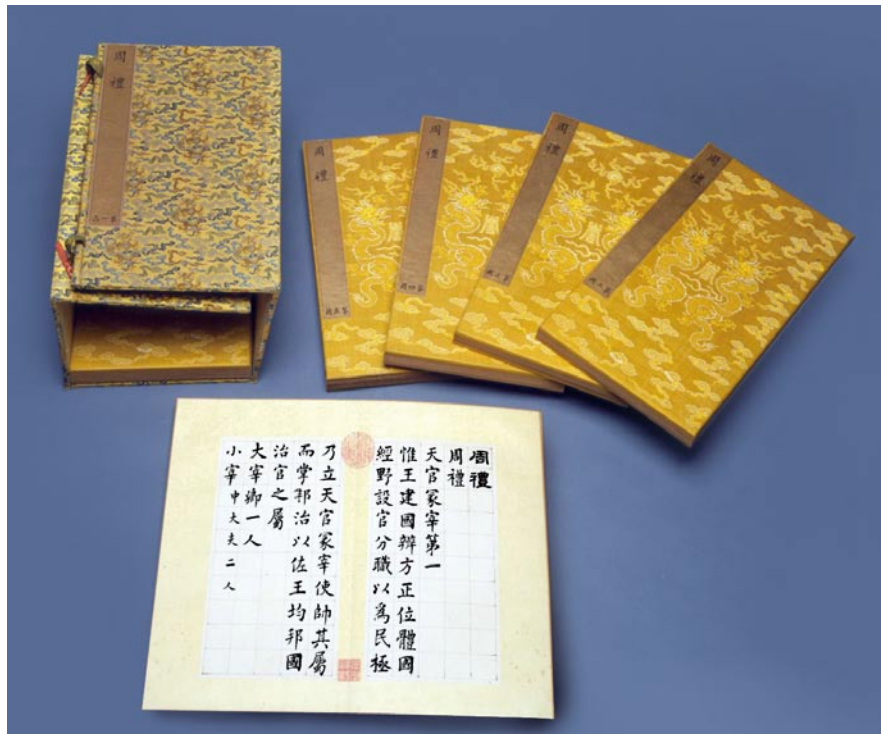 周禮
周禮
第五冊
周禮
第四冊
周禮
第三冊
周禮
第二冊
周禮
周禮
天官冢宰第一
惟王建國辯方正位體國
經野設官分職以爲民極
乃立天官冢宰使帥其屬
而掌邦治以佐王均邦國
治官之屬
大宰卿一人
小宰中大夫二人